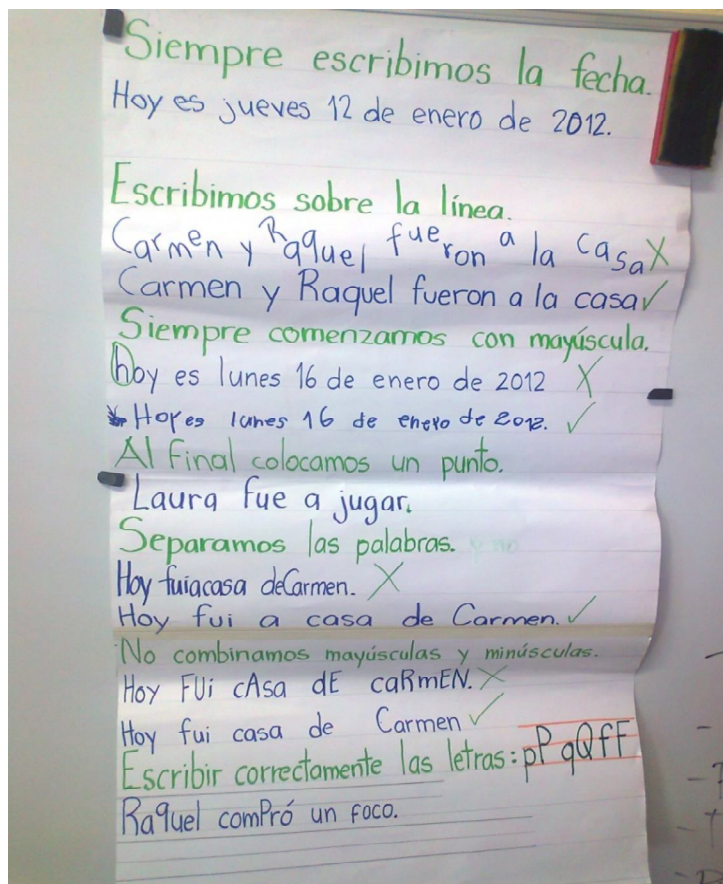 Siempre escribimos la fecha.
Hoy es jueves 12 de enero de 2012.
Escribimos sobre la línea.
Carmen y Raquel fueron a la casa X
Carmen y Raquel fueron a la casa ✓
Siempre comenzamos con mayúscula.
hoy es lunes 16 de enero de 2012 X
Hoy es lunes 16 de enero de 2012. ✓
Al final colocamos un punto.
Laura fue a jugar.
Separamos las palabras.
Hoy fuiacasa deCarmen. X
Hoy fui a casa de Carmen. ✓
No combinamos mayúsculas y minúsculas.
HoY FUi cAsa dE caRmEN. X
Hoy fui casa de Carmen ✓
Escribir correctamente las letras: pP qQ fF
Raquel comPró un foco.